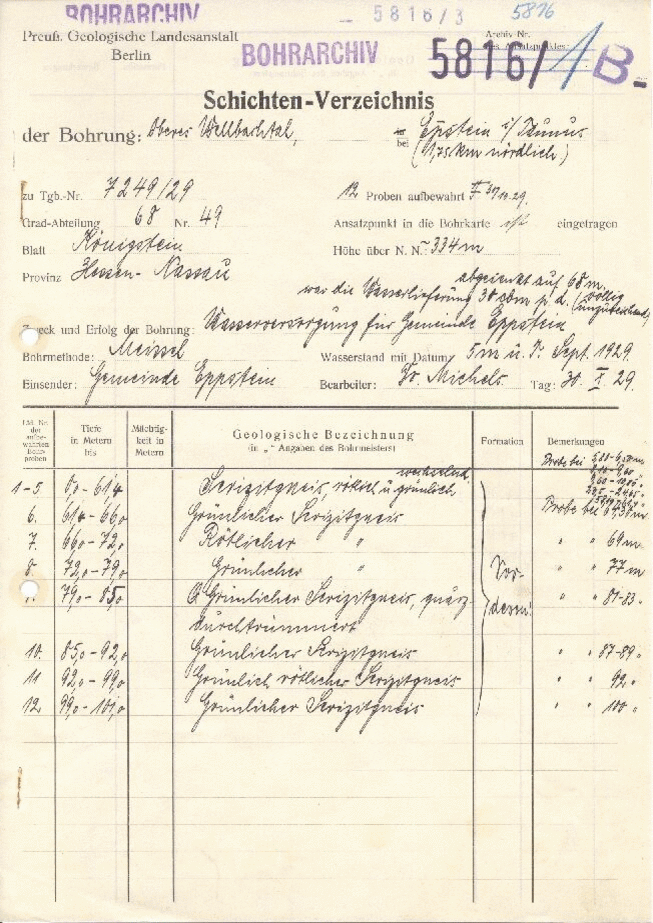 BOHRARCHIV
5816/3
5816
Preuß. Geologische Landesanstalt
Berlin
Archiv-Nr.
des Ansatzpunktes
BOHRARCHIV
5816/1 B-
Schichten-Verzeichnis
der Bohrung: Oberes Wellbachtal, bei Eppstein i/Taunus
(1,75 km nördlich)
zu Tgb.-Nr. 7249/29
12 Proben aufbewahrt
Grad-Abteilung 68 Nr. 49
Ansatzpunkt in die Bohrkarte ist eingetragen
Blatt Königstein
Höhe über N. N. ~334 m
Provinz Hessen-Nassau
abgesenkt auf 68 m.
war die Wasserlieferung 30 cbm p. d. (völlig
unzureichend)
Zweck und Erfolg der Bohrung: Wasserversorgung für Gemeinde Eppstein
Bohrmethode: Meissel
Wasserstand mit Datum 5 m u. T. Sept. 1929.
Einsender: Gemeinde Eppstein
Bearbeiter: Dr. Michels Tag: 30. X. 29.
Lfd. Nr. der aufbewahrten Bohrproben
Tiefe in Metern bis
Mächtigkeit in Metern
Geologische Bezeichnung
(in „ “ Angaben des Bohrmeisters)
Formation
Bemerkungen
1-5 0,0 - 61,4 Serizitgneis, wechselnd rötlich u grünlich
6. 61,4 - 66,0 Grünlicher Serizitgneis Probe bei
7. 66,0 - 72,0 Rötlicher " " " 69 m
8. 72,0 - 79,0 Grünlicher " " " 77 m
79,0 - 85,0 Grünlicher Serizitgneis, quarz- " " 81-83
durchtrümmert
Vordevon!
10. 85,0 - 92,0 Grünlicher Serizitgneis " " 87-89
11. 92,0 - 99,0 Grünlich rötlicher Serizitgneis " "
12. 99,0 - 101,0 Grünlicher Serizitgneis " " 100 "